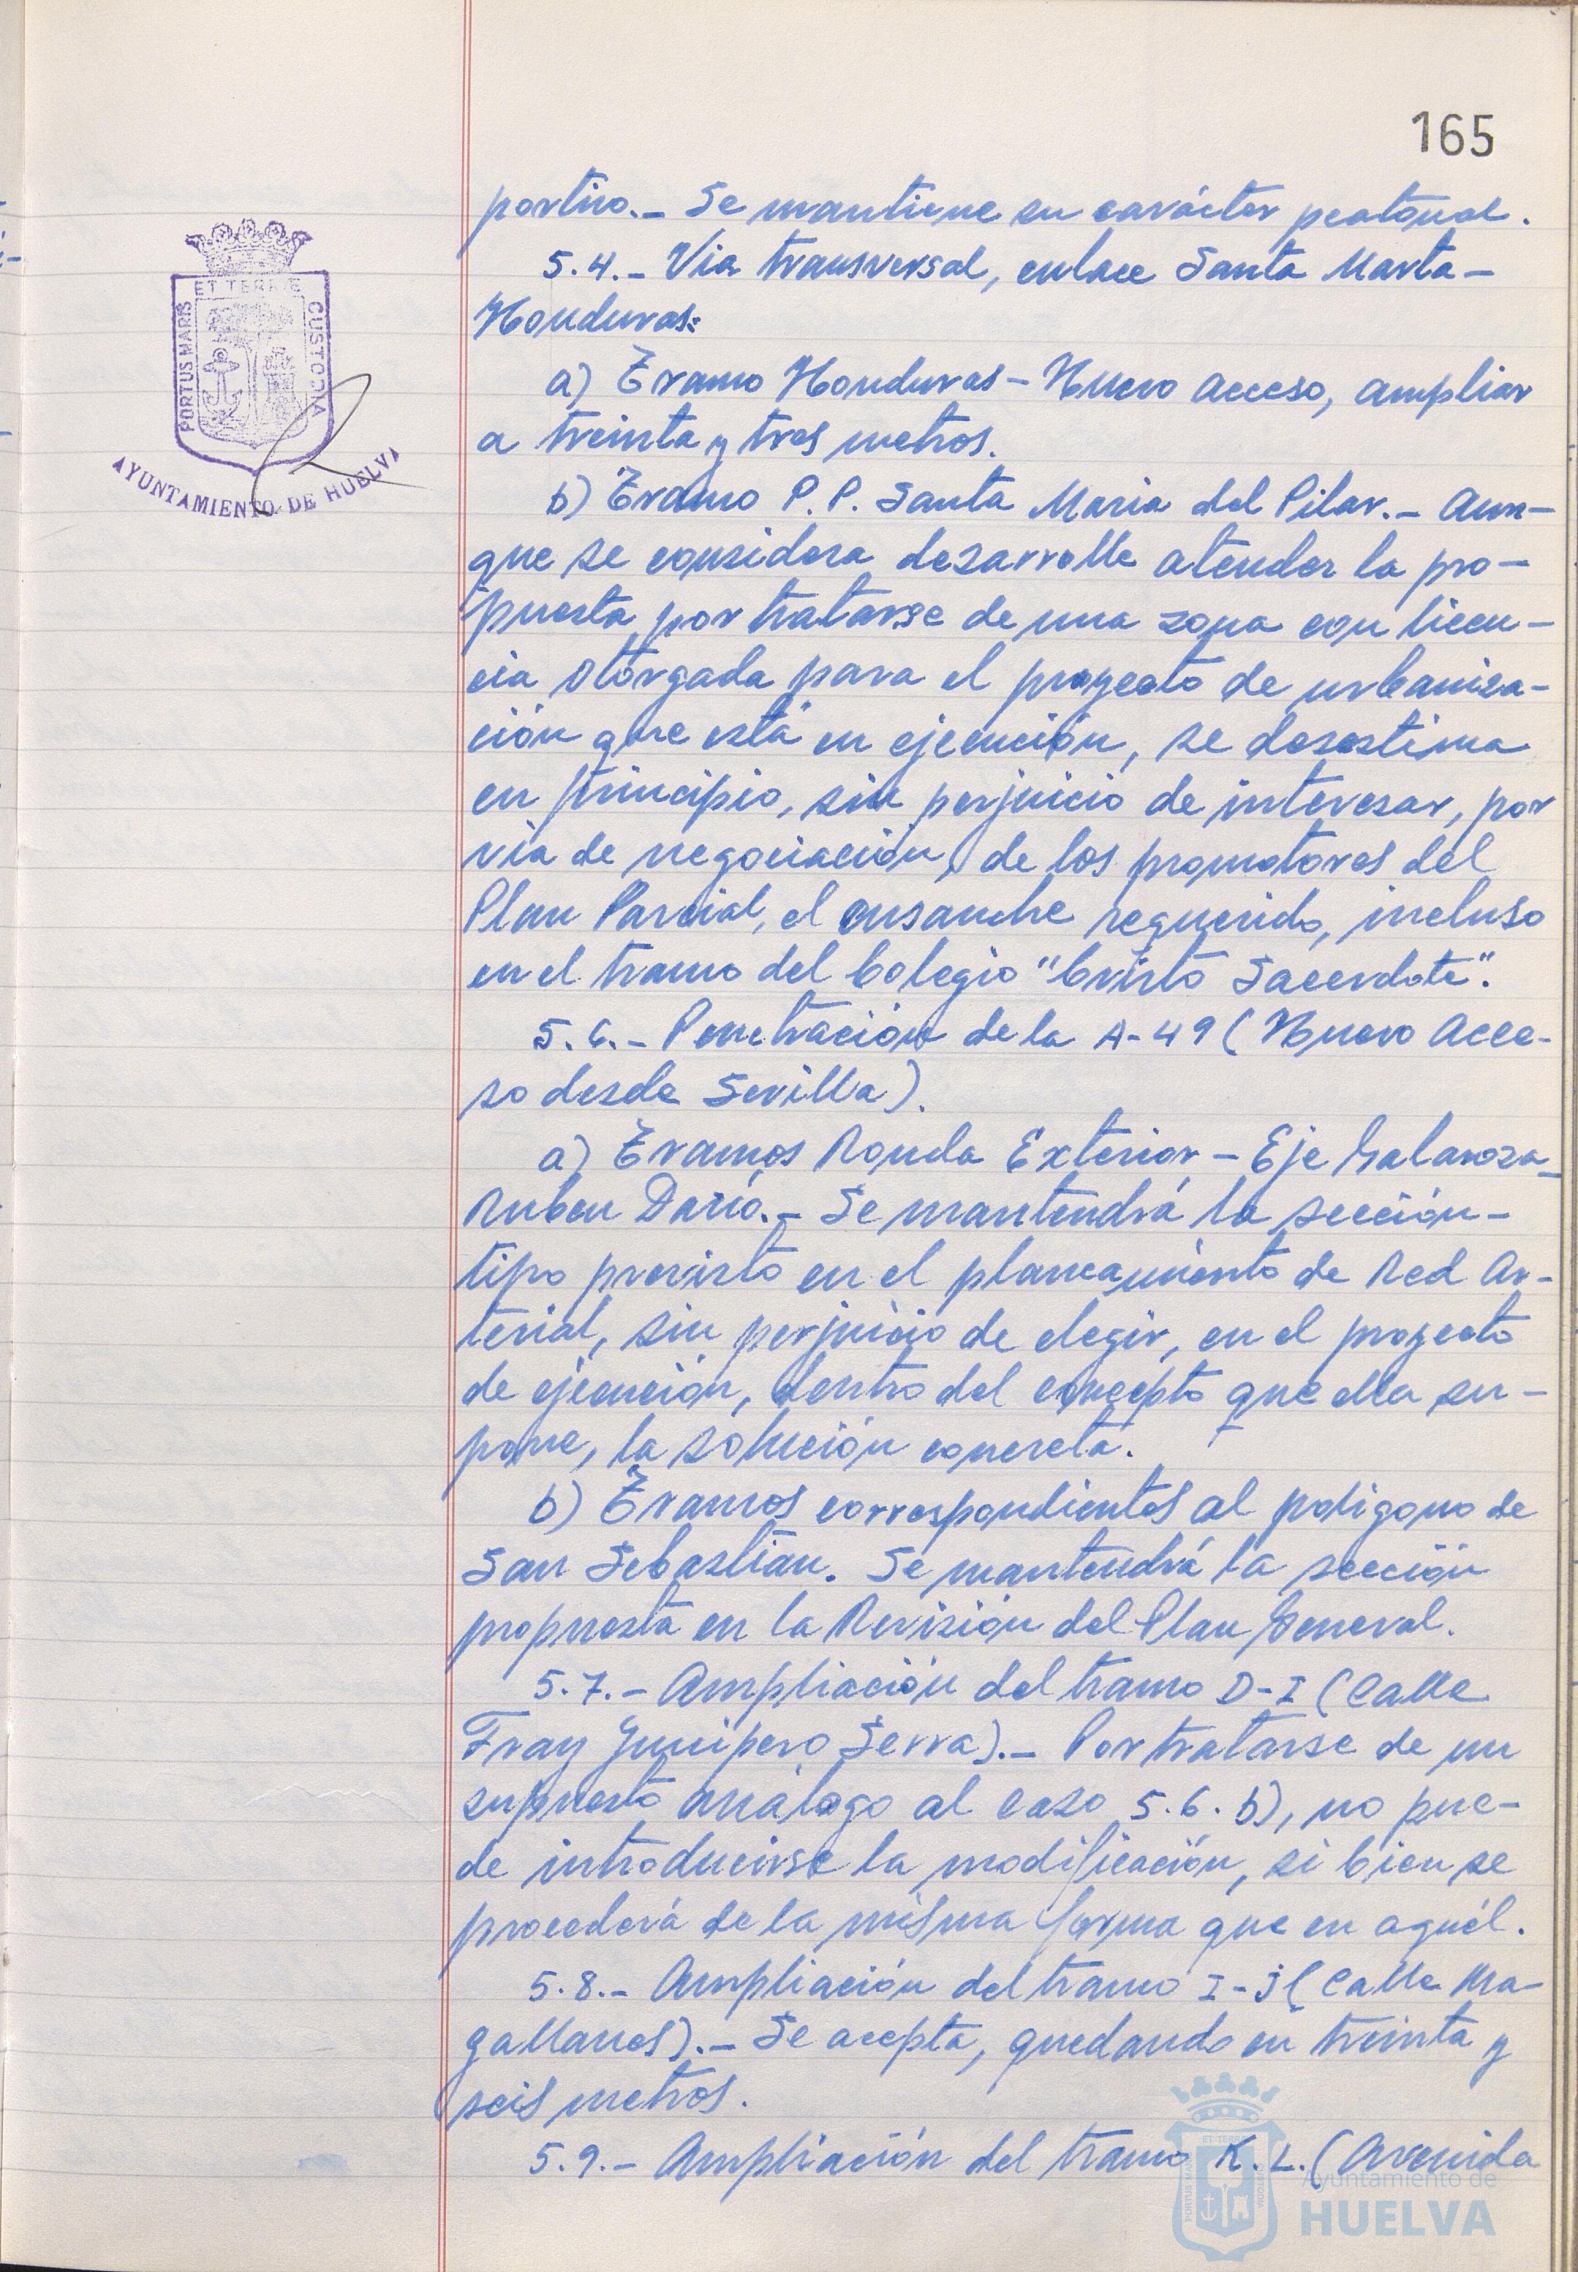 165
portivo.- Se mantiene su carácter peatonal.
5.4.- Via transversal, enlace Santa Marta-
Honduras:
a) Tramo Honduras - Nuevo Acceso, ampliar
a treinta y tres metros.
b) Tramo P.P. Santa Maria del Pilar.- Aun-
que se considera desarrolle atender la pro-
puesta por tratarse de una zona con licen-
cia otorgada para el proyecto de urbaniza-
ción que está en ejecución, se desestima
en principio, sin perjuicio de interesar, por
via de negociación, de los promotores del
Plan Parcial, el ensanche requerido, incluso
en el tramo del Colegio "Cristo Sacerdote".
5.6.- Penetración de la A-49 (Nuevo Acce-
so desde Sevilla).
a) Tramos Ronda Exterior - Eje Galaroza-
Ruben Darío.- Se mantendrá la sección-
tipo previsto en el planeamiento de Red Ar-
terial, sin perjuicio de elegir, en el proyecto
de ejecución, dentro del concepto que ella su-
pone, la solución concreta.
b) Tramos correspondientes al poligono de
San Sebastian. Se mantendrá la sección
propuesta en la Revisión del Plan General.
5.7.- Ampliación del tramo D-I (Calle
Fray Junipero Serra).- Por tratarse de un
supuesto análogo al caso 5.6.b), no pue-
de introducirse la modificación, si bien se
procederá de la misma forma que en aquél.
5.8.- Ampliación del tramo I-J (Calle Ma-
gallanes).- Se acepta, quedando en treinta y
seis metros.
5.9.- Ampliación del tramo K.L. (Avenida
PORTUS MARIS ET TERRE CUSTODIA
AYUNTAMIENTO DE HUELVA
Ayuntamiento de
HUELVA